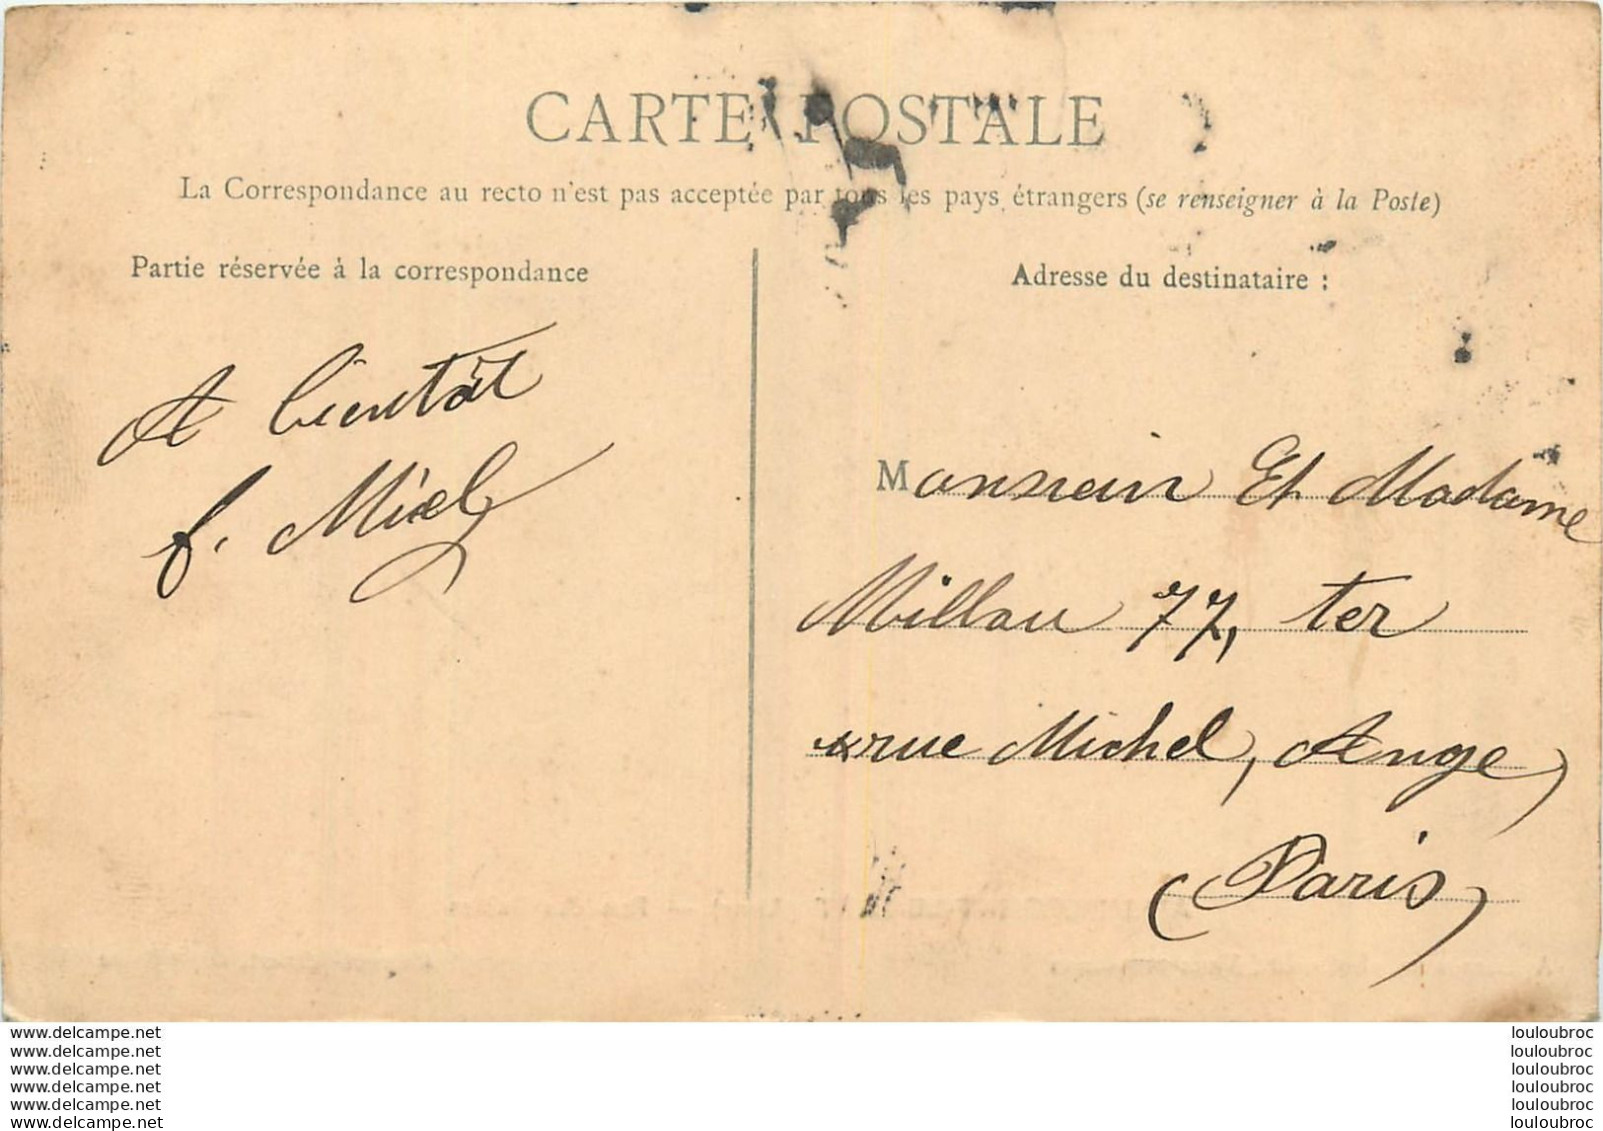 CARTE POSTALE
La Correspondance au recto n'est pas acceptée par tous les pays étrangers (se renseigner à la Poste)
Partie réservée à la correspondance
A bientôt
f. Miel
Adresse du destinataire :
Monsieur Et Madame
Millau 77, ter
rue Michel, Ange
(Paris)
www.delcampe.net
www.delcampe.net
www.delcampe.net
www.delcampe.net
www.delcampe.net
www.delcampe.net
louloubroc
louloubroc
louloubroc
louloubroc
louloubroc
louloubroc